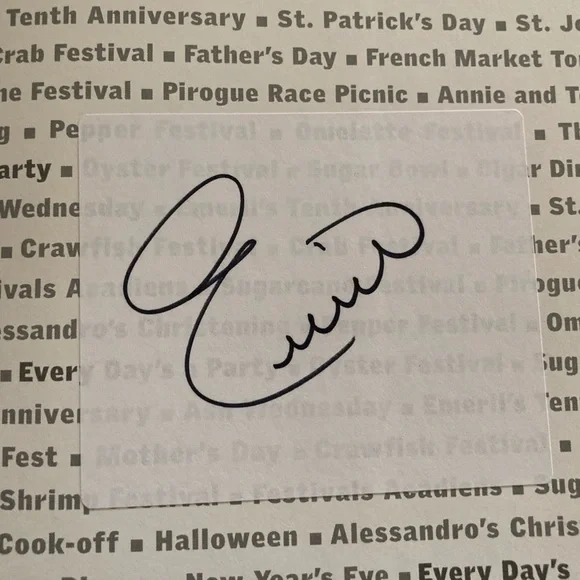 Tenth Anniversary ■ St. Patrick's Day ■ St. Jo
Crab Festival ■ Father's Day ■ French Market To
ne Festival ■ Pirogue Race Picnic ■ Annie and T
g ■ Pepper Festival ■ Omelette Festival ■ Th
arty ■ Oyster Festival ■ Sugar Bowl ■ Cigar Din
Wednesday ■ Emeril's Tenth Anniversary ■ St.
■ Crawfish Festival ■ Crab Festival ■ Father's
ivals Acadiens ■ Sugarcane Festival ■ Pirogue
essandro's Christening ■ Pepper Festival ■ Om
■ Every Day's a Party ■ Oyster Festival ■ Sug
nniversary ■ Ash Wednesday ■ Emeril's Ten
Fest ■ Mother's Day ■ Crawfish Festival ■
Shrimp Festival ■ Festivals Acadiens ■ Sug
Cook-off ■ Halloween ■ Alessandro's Chris
New Year's Eve ■ Every Day's
Emeril